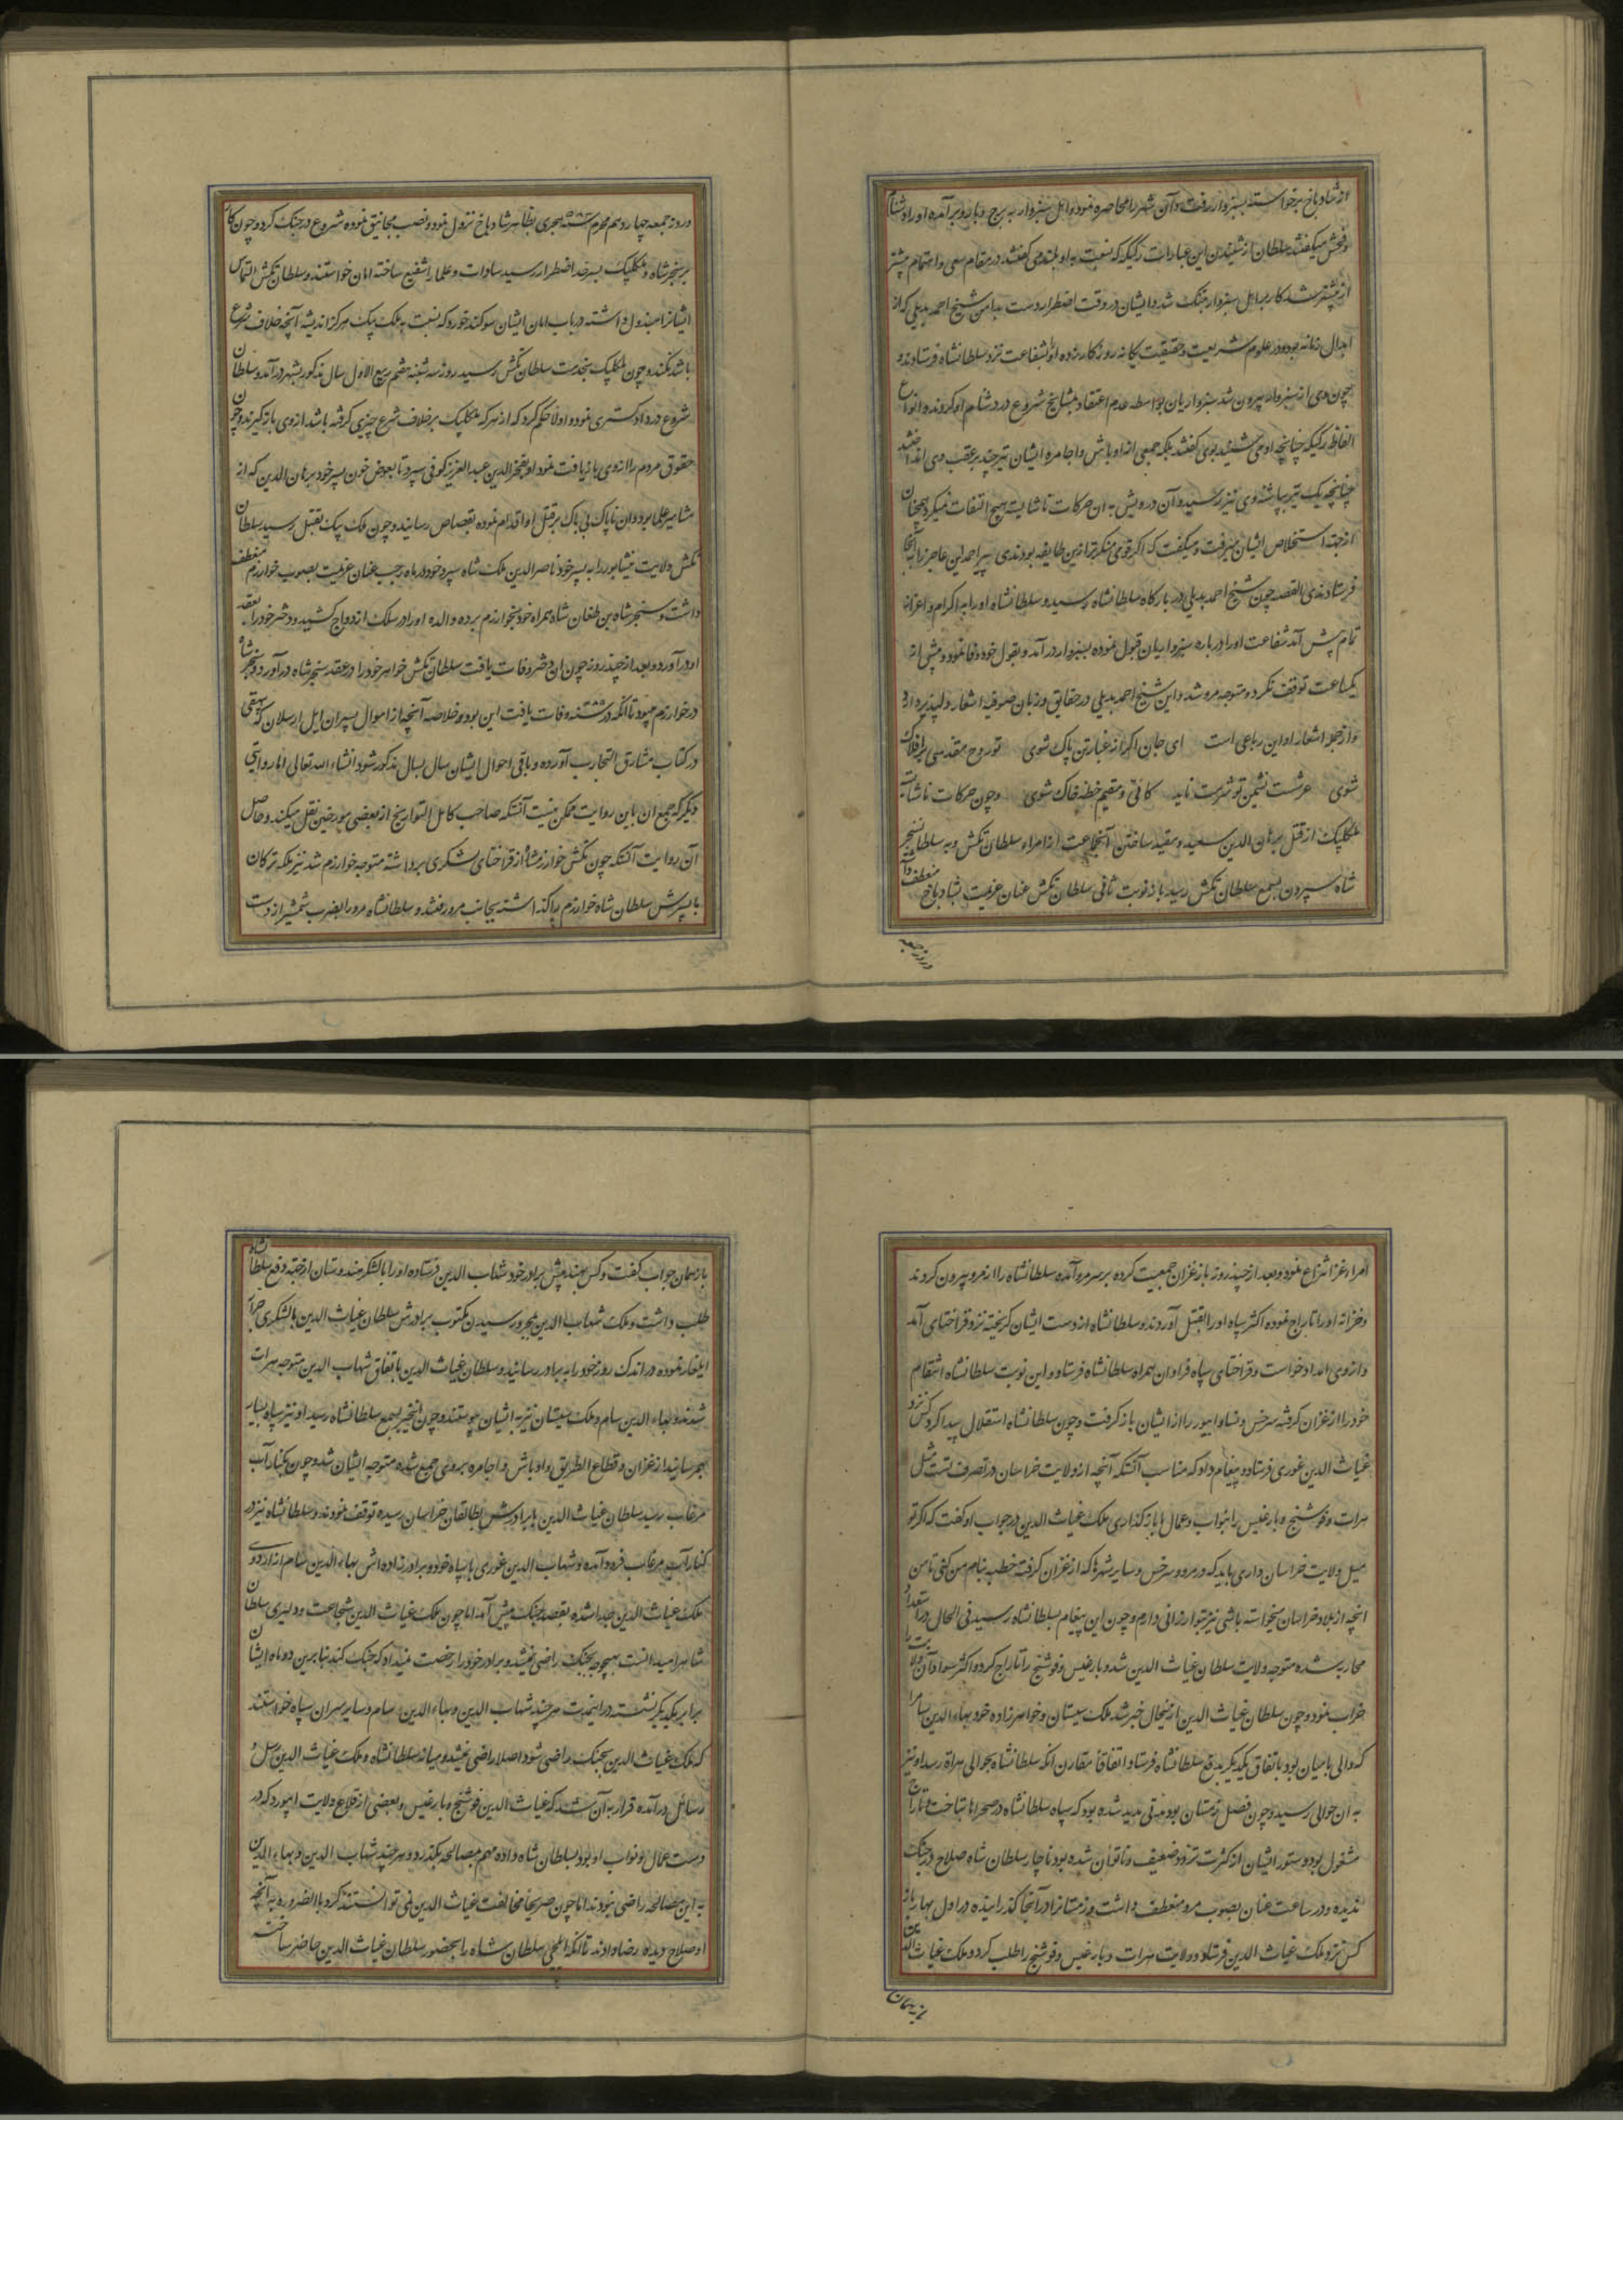 از شادباخ برخواسته بسبزوار رفت و آن شهر را محاصره نمود و اهل سبزوار به برج و بارو برآمده او را دشنام
و فحش میکفتند سلطان از شنیدن این عبارات رکیکه که نسبت به او بلند می کفتند در مقام سعی و اهتمام پیشتر
از پیشتر شد کار بر اهل سبزوار تنک شد و ایشان در وقت اضطرار دست بدامن شیخ احمد بدیلی که از
ابدال زمانه بود و در علوم شریعت و حقیقت یکانه روزکار زده او را بشفاعت نزد سلطانشاه فرستادند و
چون وی از سبزوار بیرون شد سبزواریان بواسطه عدم اعتقاد بمشایخ شروع در دشنام او کردند و انواع
الفاظ رکیکه چنانچه او می شنید بوی کفتند بلکه جمعی از اوباش و اجامره ایشان تیر چند بر عقب وی انداختند
چنانچه یک تیر بپاشنه وی نیز رسید و آن درویش به ان حرکات ناشایست هیچ التفات نمیکرد همچنان
از جهة استخلاص ایشان میرفت و میکفت که اکر قومی منکرتر ازین طایفه بودندی پیر احمد این عاجز را به آنجا
فرستادندی القصه چون شیخ احمد بدیلی در بارکاه سلطانشاه رسید و سلطانشاه او را به اکرام و اعزاز
تمام پیش آمد شفاعت او را درباره سبزواریان قبول نموده بسبزوار درآمد و بقول خود وفا نمود و پیش از
یکساعت توقف نکرده متوجه مرو شد و این شیخ احمد بدیلی در حقایق و زبان صوفیه اشعار دلپذیر دارد
و از جمله اشعار او این رباعی است ای جان اکر از غبار تن پاک شوی تو روح مقدسی بر افلاک
شوی عرشست نشیمن تو شرمت ناید کائی و مقیم خطه خاک شوی و چون حرکات ناشایسته
منکلپک از قتل برهان الدین سعید و مقید ساختن آنجماعت از امراء سلطان تکش و به سلطان سنجر
شاه سپردن بسمع سلطان تکش رسید باز نوبت ثانی سلطان تکش عنان عزیمت بشادباخ منعطف داشت
و روز جمعه
و روز جمعه چهاردهم محرم سنه ۵۸۳ هجری بظاهر شادباخ نزول نمود و نصب مجانیق نموده شروع در جنک کرد و چون کار
بر سنجرشاه و منکلپک بسرحد اضطرار رسید سادات و علما را شفیع ساخته امان خواستند و سلطان تکش التماس
ایشانرا مبذول داشته در باب امان ایشان سوکند خورد که نسبت به ملک پک هرکز اندیشه آنچه خلاف شرع
باشد نکند و چون منکلپک بخدمت سلطان تکش رسید روز سه شنبه هفتم ربیع الاول سال مذکور بشهر درآمد و سلطان
شروع در دادکستری نمود و اولا حکم کرد که از هر که منکلپک برخلاف شرع چیزی کرفته باشد از وی باز کیرند و چون
حقوق مردم را از وی بازیافت نمود او بفخرالدین عبدالعزیز کوفی سپرد تا بعوض خون پسر خود برهان الدین که از
مشاهیر علما بود و ان ناپاک بی باک بر قتل او اقدام نموده بقصاص رسانید و چون ملک پک بقتل رسید سلطان
تکش ولایت نیشابور را به پسر خود ناصرالدین ملک شاه سپرد و خود در ماه رجب عنان عزیمت بصوب خوارزم منعطف
داشت و سنجر شاه بن طغان شاه همراه خود بخوارزم برده والده او را در سلک ازدواج کشید و دختر خود را بعقد
او درآورد و بعد از چند روز چون ان دختر وفات یافت سلطان تکش خواهر خود را در عقد سنجر شاه درآورد و سنجر شاه
در خوارزم میبود تا آنکه در ۵۹۵ سنه وفات یافت این بود خلاصه آنچه از احوال پسران ایل ارسلان که بیهقی
در کتاب مشارق التجارب آورده و باقی احوال ایشان سال بسال مذکور شود انشاء الله تعالی اما روایتی
دیکر که جمع ان باین روایت ممکن نیست آنستکه صاحب کامل التواریخ از بعضی مورخین نقل میکند و حاصل
آن روایت آنستکه چون تکش خوارزمشاه از قراختای لشکری برداشته متوجه خوارزم شد نیز ملکه ترکان
با پسرش سلطان شاه خوارزم را کذاشته بجانب مرو رفتند و سلطانشاه مرو را بضرب شمشیر از دست
امراء غز انتزاع نمود و بعد از چند روز باز غزان جمعیت کرده بر سر مرو آمده سلطانشاه را از مرو بیرون کردند
و خزانه او را تاراج نموده اکثر سپاه او را بقتل آوردند و سلطانشاه از دست ایشان کریخته نزد قراختای آمد
و از وی امداد خواست و قراختای سپاه فراوان همراه سلطانشاه فرستاد و این نوبت سلطانشاه انتقام
خود را از غزان کرفته سرخس و نسا و ابیورد را از ایشان باز کرفت و چون سلطانشاه استقلال پیدا کرد کس نزد
غیاث الدین غوری فرستاد و پیغام داد که مناسب آنستکه آنچه از ولایت خراسان در تصرف تست مثل
هرات و فوشنج و بادغیس را بنواب و عمال ما باز کذاری ملک غیاث الدین در جواب او کفت که اکر تو
میل ولایت خراسان داری باید که در مرو و سرخس و سایر شهرها که از غزان کرفته خطبه بنام من کنی تا من
انچه از بلاد خراسان میخواسته باشی نیز بتو ارزانی دارم و چون این پیغام بسلطانشاه رسید فی الحال در استعداد
محاربه شده متوجه ولایت سلطان غیاث الدین شد و بادغیس و فوشنج را تاراج کرد و اکثر سواد آن ولایت را
خراب نمود و چون سلطان غیاث الدین از ینحال خبر شد ملک سیستان و خواهرزاده خود بهاء الدین سام را
که والی بامیان بود باتفاق یکدیکر بدفع سلطانشاه فرستاد و اتفاقا مقارن انکه سلطانشاه بحوالی هراة رسید او نیز
به ان حوالی رسید و چون فصل زمستان بود و مدتی مدید شده بود که سپاه سلطانشاه در صحراها بتاخت و تاراج
مشغول بود و ستور ایشان از کثرت تردد ضعیف و ناتوان شده بود ناچار سلطان شاه صلاح در جنک
ندیده و در ساعت عنان بصوب مرو منعطف داشت و زمستانرا در آنجا کذرانیده در اول بهار باز
کس نزد ملک غیاث الدین فرستاد و ولایت هرات و بادغیس و فوشنج را طلب کرد و ملک غیاث الدین
باز همان
باز همان جواب کفت و کس بهند پیش برادر خود شهاب الدین فرستاده او را با لشکر هندوستان از جهة دفع سلطانشاه
طلب داشت و ملک شهاب الدین بمجرد رسیدن مکتوب برادرش سلطان غیاث الدین با لشکری جرار
ایلغار نموده در اندک روز خود را به برادر رسانید و سلطان غیاث الدین باتفاق شهاب الدین متوجه هرات
شدند و بهاء الدین سام و ملک سیستان نیز به ایشان پیوستند و چون اینخبر بسمع سلطانشاه رسید او نیز سپاه بسیار
بهم رسانید از غزان و قطاع الطریق و اوباش و اجامره بر وی جمع شده متوجه ایشان شد و چون بکنار آب
مرغاب رسید سلطان غیاث الدین با برادرش بطالقان خراسان رسیده توقف نمودند و سلطانشاه نیز در
کنار آب مرغاب فرود آمده و شهاب الدین غوری با سپاه خود و برادرزاده اش بهاء الدین سام از اردوی
ملک غیاث الدین جدا شده بقصد جنک پیش آمد اما چون ملک غیاث الدین شجاعت و دلیری سلطان
شاه را میدانست بهیچوجه بجنک راضی نمیشد و برادر خود را رخصت نمیداد که جنک کند بنابرین دو ماه ایشان
برابر یکدیکر نشسته در اینمدت هر چند شهاب الدین و بهاء الدین سام و سایر سران سپاه خواستند
که ملک غیاث الدین بجنک راضی شود اصلا راضی نمیشد و میانه سلطانشاه و ملک غیاث الدین رسل و
رسائل درآمده قرار به آن شد که غیاث الدین فوشنج و بادغیس و بعضی از قلاع ولایت ابیورد که در
دست عمال و نواب او بود بسلطان شاه داده مهم بمصالحه بکذرد و هر چند شهاب الدین و بهاء الدین
به این مصالحه راضی نبودند اما چون صریحا مخالفت غیاث الدین نمی توانستند کرد بالضروره به آنچه
او صلاح دیده رضا دادند تا آنکه ایلچی سلطان شاه را بحضور سلطان غیاث الدین حاضر ساخته